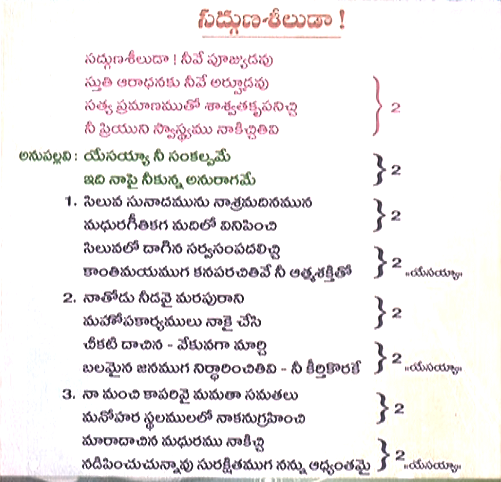 సద్గుణశీలుడా !
సద్గుణశీలుడా ! నీవే పూజ్యుడవు
స్తుతి ఆరాధనకు నీవే అర్హూడవు
సత్య ప్రమాణముతో శాశ్వతకృపనిచ్చి
నీ ప్రియుని స్వాస్థ్యము నాకిచ్చితివి
} 2
అనుపల్లవి : యేసయ్యా నీ సంకల్పమే
ఇది నాపై నీకున్న అనురాగమే
} 2
1. సిలువ సునాదమును నాశ్రమదినమున
మధురగీతికగ మదిలో వినిపించి
} 2
సిలువలో దాగిన సర్వసంపదలిచ్చి
కాంతిమయముగ కనపరచితివే నీ ఆత్మశక్తితో
} 2 "యేసయ్యా"
2. నాతోడు నీడవై మరపురాని
మహోపకార్యములు నాకై చేసి
} 2
చీకటి దాచిన - వేకువగా మార్చి
బలమైన జనముగ నిర్ధారించితివి - నీ కీర్తికొరకే
} 2 "యేసయ్యా"
3. నా మంచి కాపరివై మమతా సమతలు
మనోహర స్థలములలో నాకనుగ్రహించి
} 2
మారాదాచిన మధురము నాకిచ్చి
నడిపించుచున్నావు సురక్షితముగ నన్ను ఆధ్యంతమై
} 2 "యేసయ్యా"